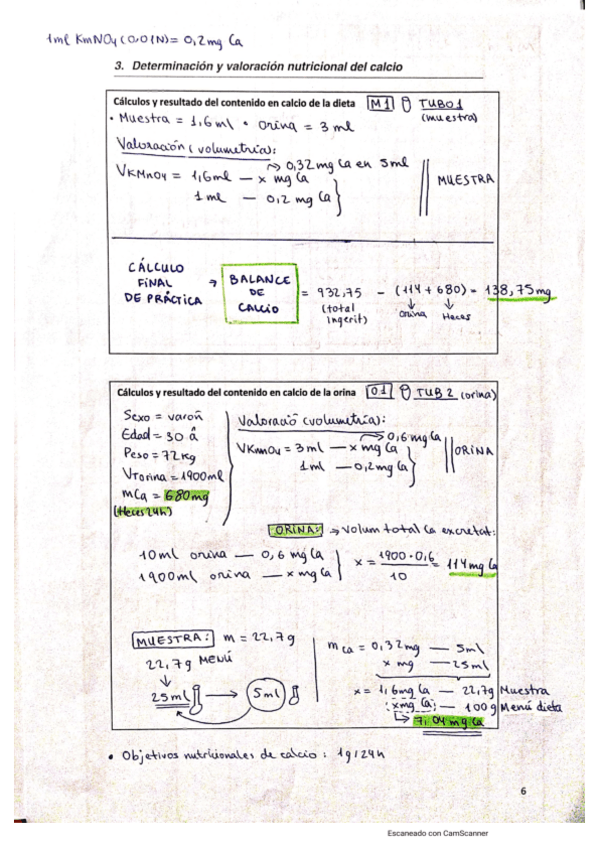 1ml KmNO4 (0,01N) = 0,2mg Ca
3. Determinación y valoración nutricional del calcio
Cálculos y resultado del contenido en calcio de la dieta M1 TUBO1
(muestra)
• Muestra = 1,6ml • orina = 3 ml
Valoración (volumetría):
→ 0,32mg Ca en 5ml
VKMnO4 = 1,6ml — x mg Ca
1 ml — 0,2 mg Ca
MUESTRA
CÁLCULO
FINAL
DE PRÁCTICA
→ BALANCE
DE
CALCIO
= 932,75 - (114 + 680) = 138,75mg
(total
ingerit)
orina
Heces
Cálculos y resultado del contenido en calcio de la orina O1 TUB2 (orina)
Sexo = varón
Edad = 30 â
Peso = 72Kg
VTorina = 1900ml
mCa = 680mg
(Heces 24h)
Valoració (volumetría):
→ 0,6mg Ca
VKmnO4 = 3ml — x mg Ca
1ml — 0,2mg Ca
ORINA
ORINA: → Volum total Ca excretat:
10ml orina — 0,6 mg Ca
1900ml orina — x mg Ca
x = 1900·0,6 / 10 = 114mg Ca
MUESTRA: m = 22,7g
22,7g MENÚ
25ml → 5ml
mCa = 0,32mg — 5ml
x mg — 25ml
x = 1,6mg Ca — 22,7g Muestra
xmg Ca — 100g Menú dieta
→ 7,04mg Ca
• Objetivos nutricionales de calcio : 1g/24h
6
Escaneado con CamScanner